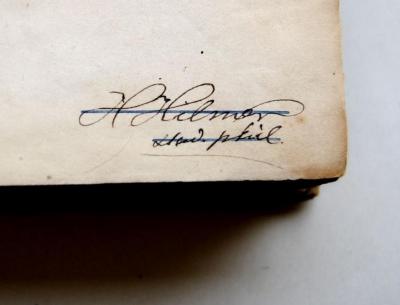 H Hilmer
stud. phil.